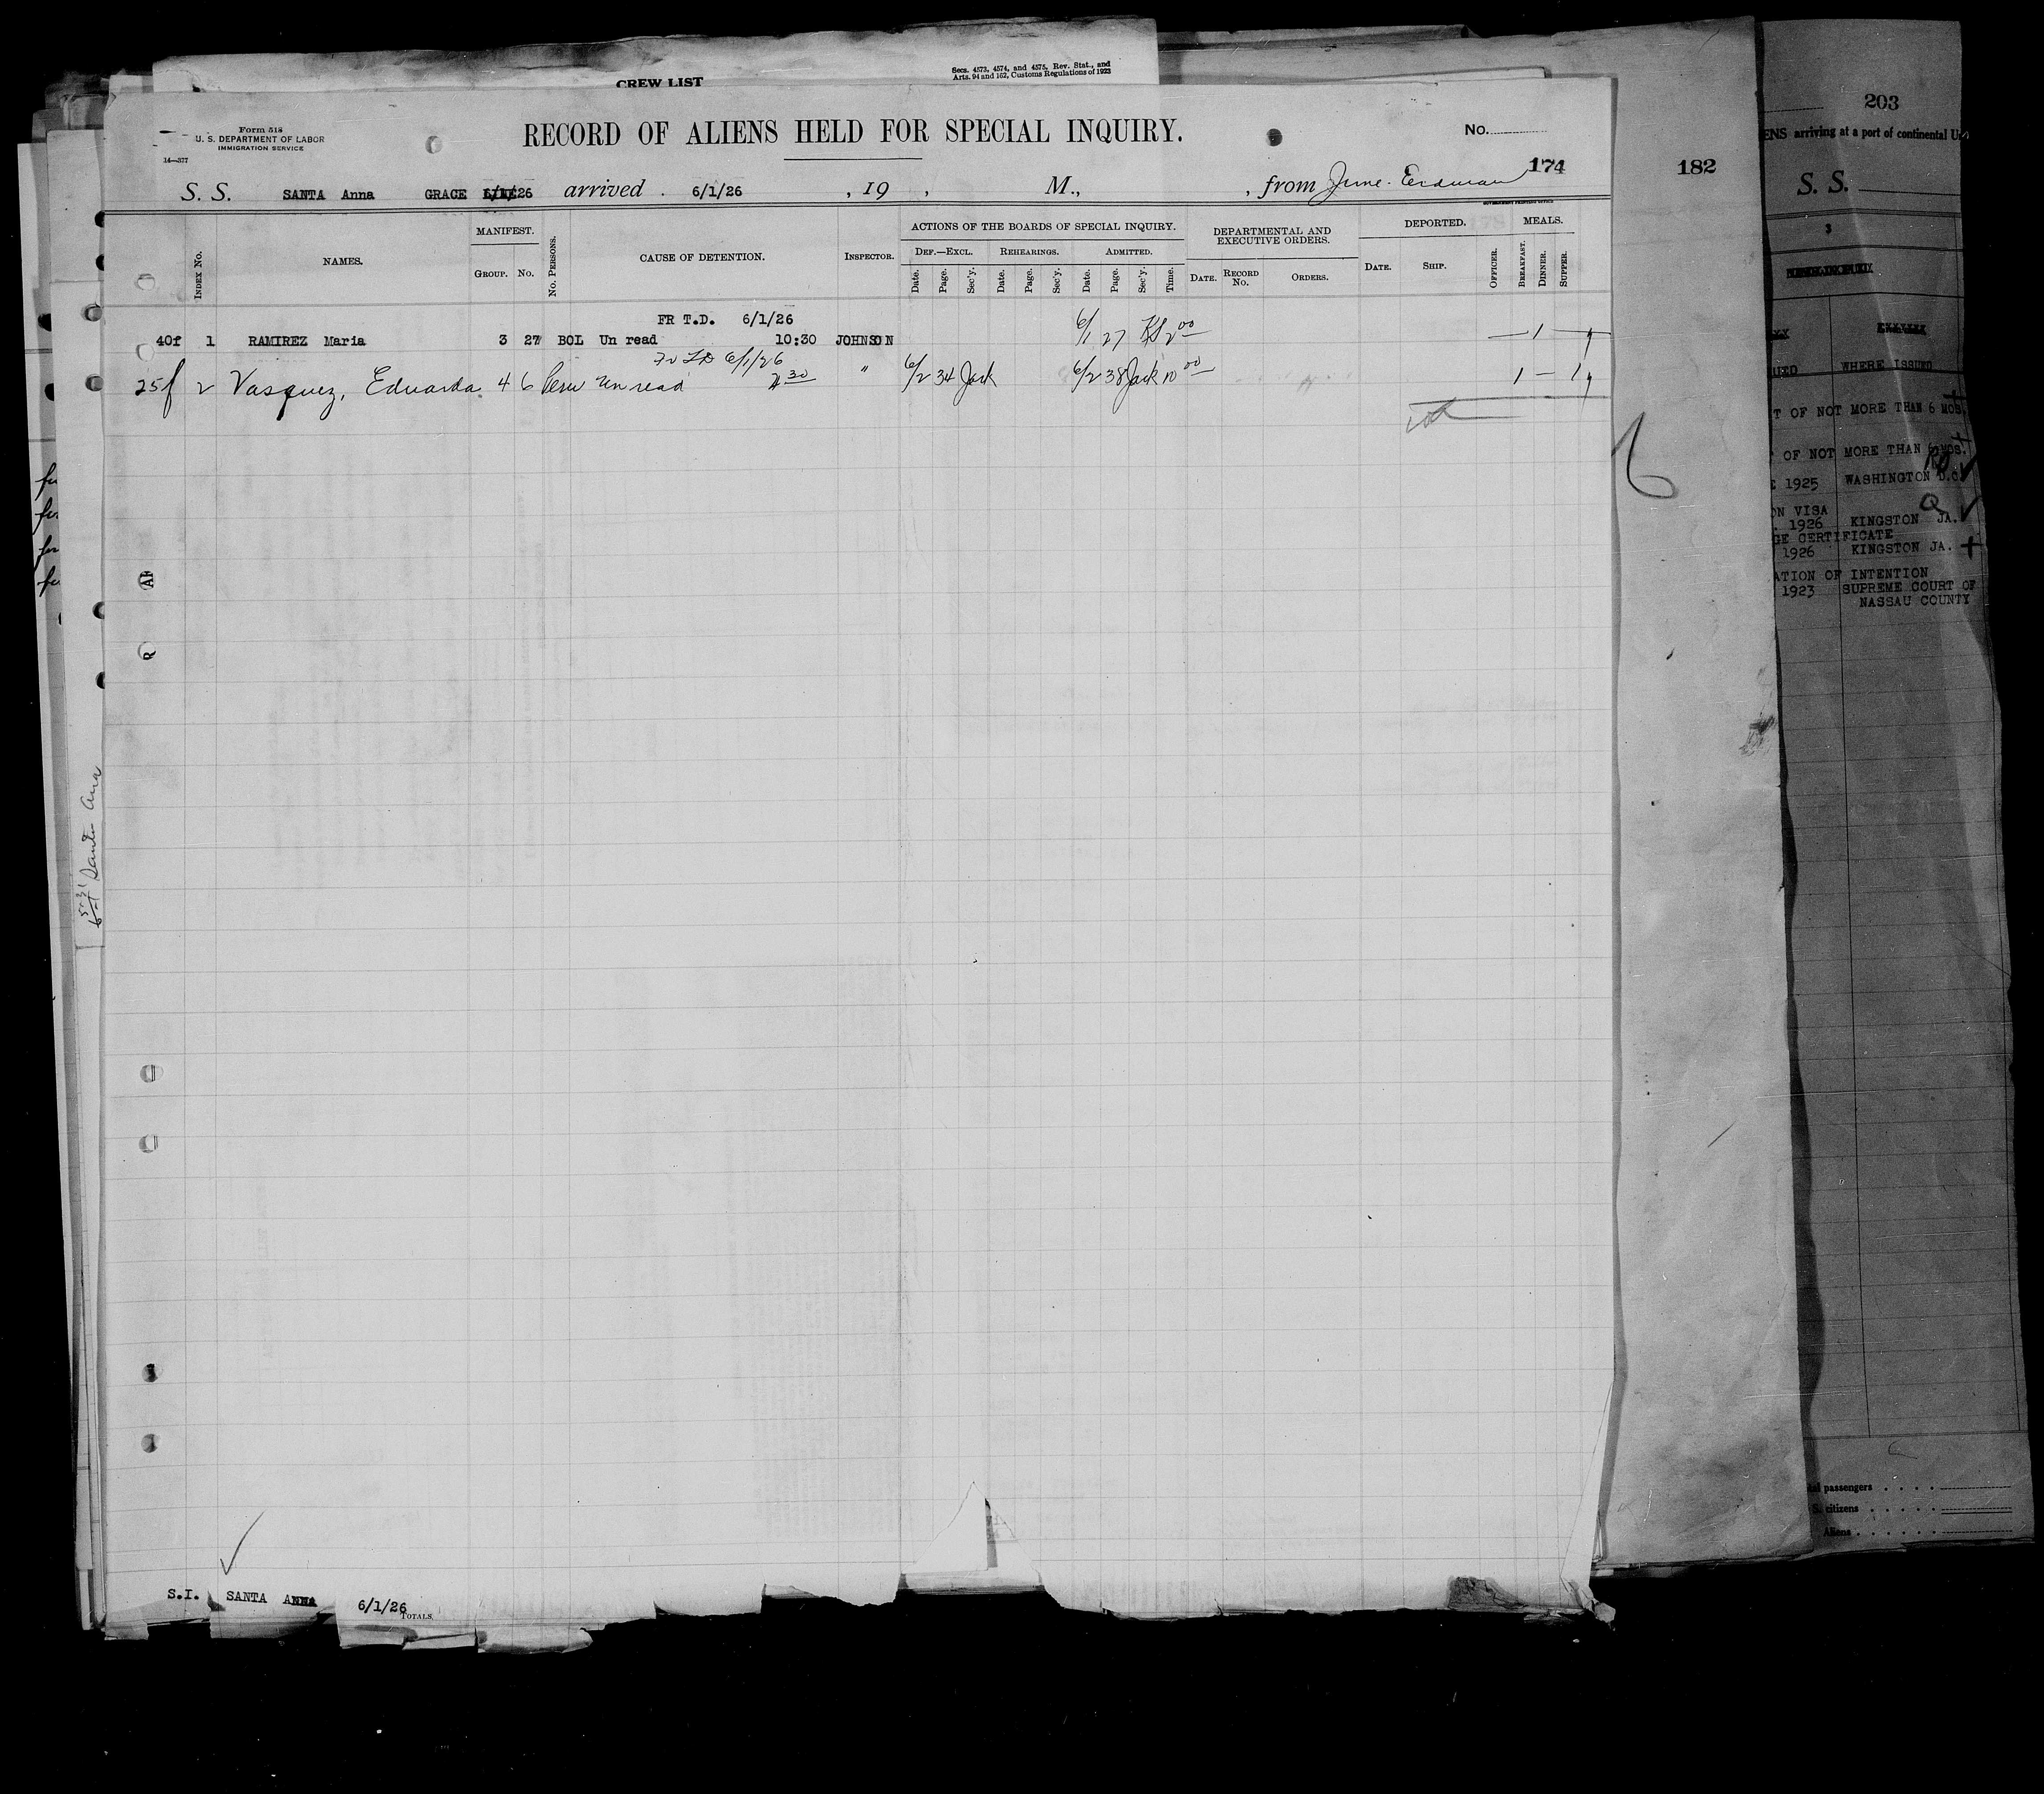 CREW LIST
Secs. 4573, 4574, and 4575, Rev. Stat., and
Arts. 94 and 162, Customs Regulations of 1923
Form 518
U. S. DEPARTMENT OF LABOR
IMMIGRATION SERVICE
14—377
RECORD OF ALIENS HELD FOR SPECIAL INQUIRY.
No.
174
S. S. SANTA Anna GRACE 26 arrived 6/1/26, 19 , M., , from
GOVERNMENT PRINTING OFFICE
INDEX No.
NAMES.
MANIFEST.
GROUP. No.
No. PERSONS.
CAUSE OF DETENTION.
INSPECTOR.
ACTIONS OF THE BOARDS OF SPECIAL INQUIRY.
DEF.—EXCL. REHEARINGS. ADMITTED.
Date. Page. Sec'y. Date. Page. Sec'y. Date. Page. Sec'y. Time.
DEPARTMENTAL AND
EXECUTIVE ORDERS.
DATE. RECORD No. ORDERS.
DEPORTED.
DATE. SHIP.
OFFICER.
MEALS.
BREAKFAST. DINNER. SUPPER.
FR T.D. 6/1/26
40f 1 RAMIREZ Maria 3 27 BOL Un read 10:30 JOHNSON 6/1 27 KS 2 00 — 1 —
6/1/26
25f 2 Vasquez, Eduarda 4 6 Peru un read 30 " 6/2 34 Jack 6/2 38 Jack 10 00 1 — 1
Santa Ana
S.I. SANTA ANNA 6/1/26
TOTALS.
182
203
ENS arriving at a port of continental U
S. S.
3
WHERE ISSUED
T OF NOT MORE THAN 6 MOS.
OF NOT MORE THAN 6 MOS.
1925 WASHINGTON D.C.
ON VISA
1926 KINGSTON JA.
GE CERTIFICATE
1926 KINGSTON JA.
ATION OF INTENTION
1923 SUPREME COURT OF
NASSAU COUNTY
passengers
citizens
Aliens